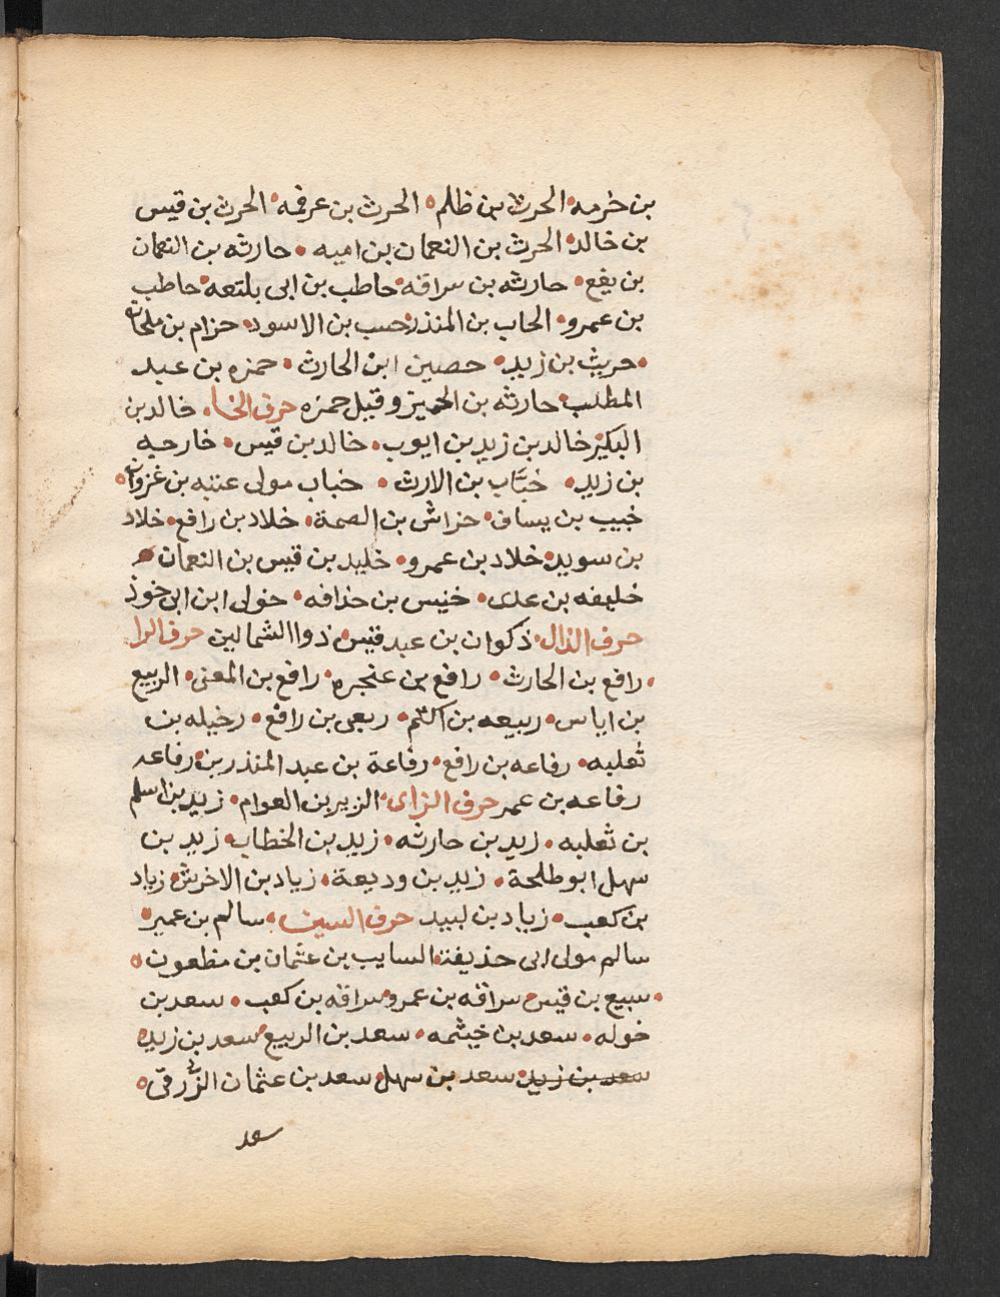 بن خزمه • الحرث بن ظلم • الحرث بن عرفجه • الحرث بن قيس
بن خالد • الحرث بن النعمان بن اميه • حارثه بن النعمان
بن يفع • حارثه بن سراقه • حاطب بن ابى بلتعه • حاطب
بن عمرو • الحاب بن المنذر • حبيب بن الاسود • حزام بن ملحان
• حريث بن زيد • حصين ابن الحارث • حمزه بن عبد
المطلب • حارثه بن الحمير وقيل حمزه حرف الخا • خالد بن
البكير خالد بن زيد بن ايوب • خالد بن قيس • خارجيه
بن زيد • خبّاب بن الارث • خباب مولى عتبه بن غزوان •
خبيب بن يساف • خراش بن الصمة • خلاد بن رافع • خلاد
بن سويد • خلاد بن عمرو • خليد بن قيس بن النعمان •
خليفه بن عدى • خنيس بن حذافه • خولى ابن ابى خوذ
حرف الذال • ذكوان بن عبد قيس • ذوا الشمالين حرف الرا
• رافع بن الحارث • رافع بن عنجره • رافع بن المعنى • الربيع
بن اياس • ربيعه بن اكثم • ربعى بن رافع • رخيله بن
ثعلبه • رفاعه بن رافع • رفاعة بن عبد المنذر بن • رفاعه
رفاعه بن عمر حرف الزاى • الزبير بن العوام • زيد بن اسلم
بن ثعلبه • زيد بن حارثه • زيد بن الخطاب • زيد بن
سهل ابو طلحة • زيد بن وديعة • زياد بن الاخرش • زياد
بن كعب • زياد بن لبيد حرف السين • سالم بن عمير •
سالم مولى ابى حذيفة • السايب بن عثمان بن مظعون •
• سبيع بن قيس • سراقه بن عمرو • سراقه بن كعب • سعد بن
خوله • سعد بن خيثمه • سعد بن الربيع • سعد بن زيد •
سعد بن زيد • سعد بن سهل • سعد بن عثمان الزُّرقىّ •
سعد